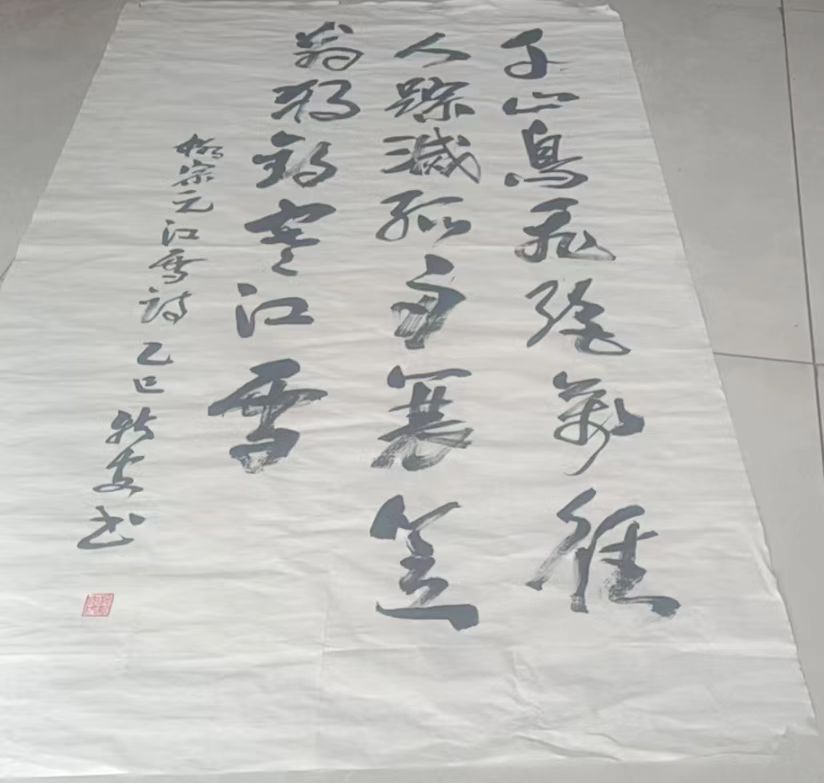 千山鳥飛絕萬徑
人踪滅孤舟蓑笠
翁獨釣寒江雪
柳宗元江雪詩乙巳秋安书